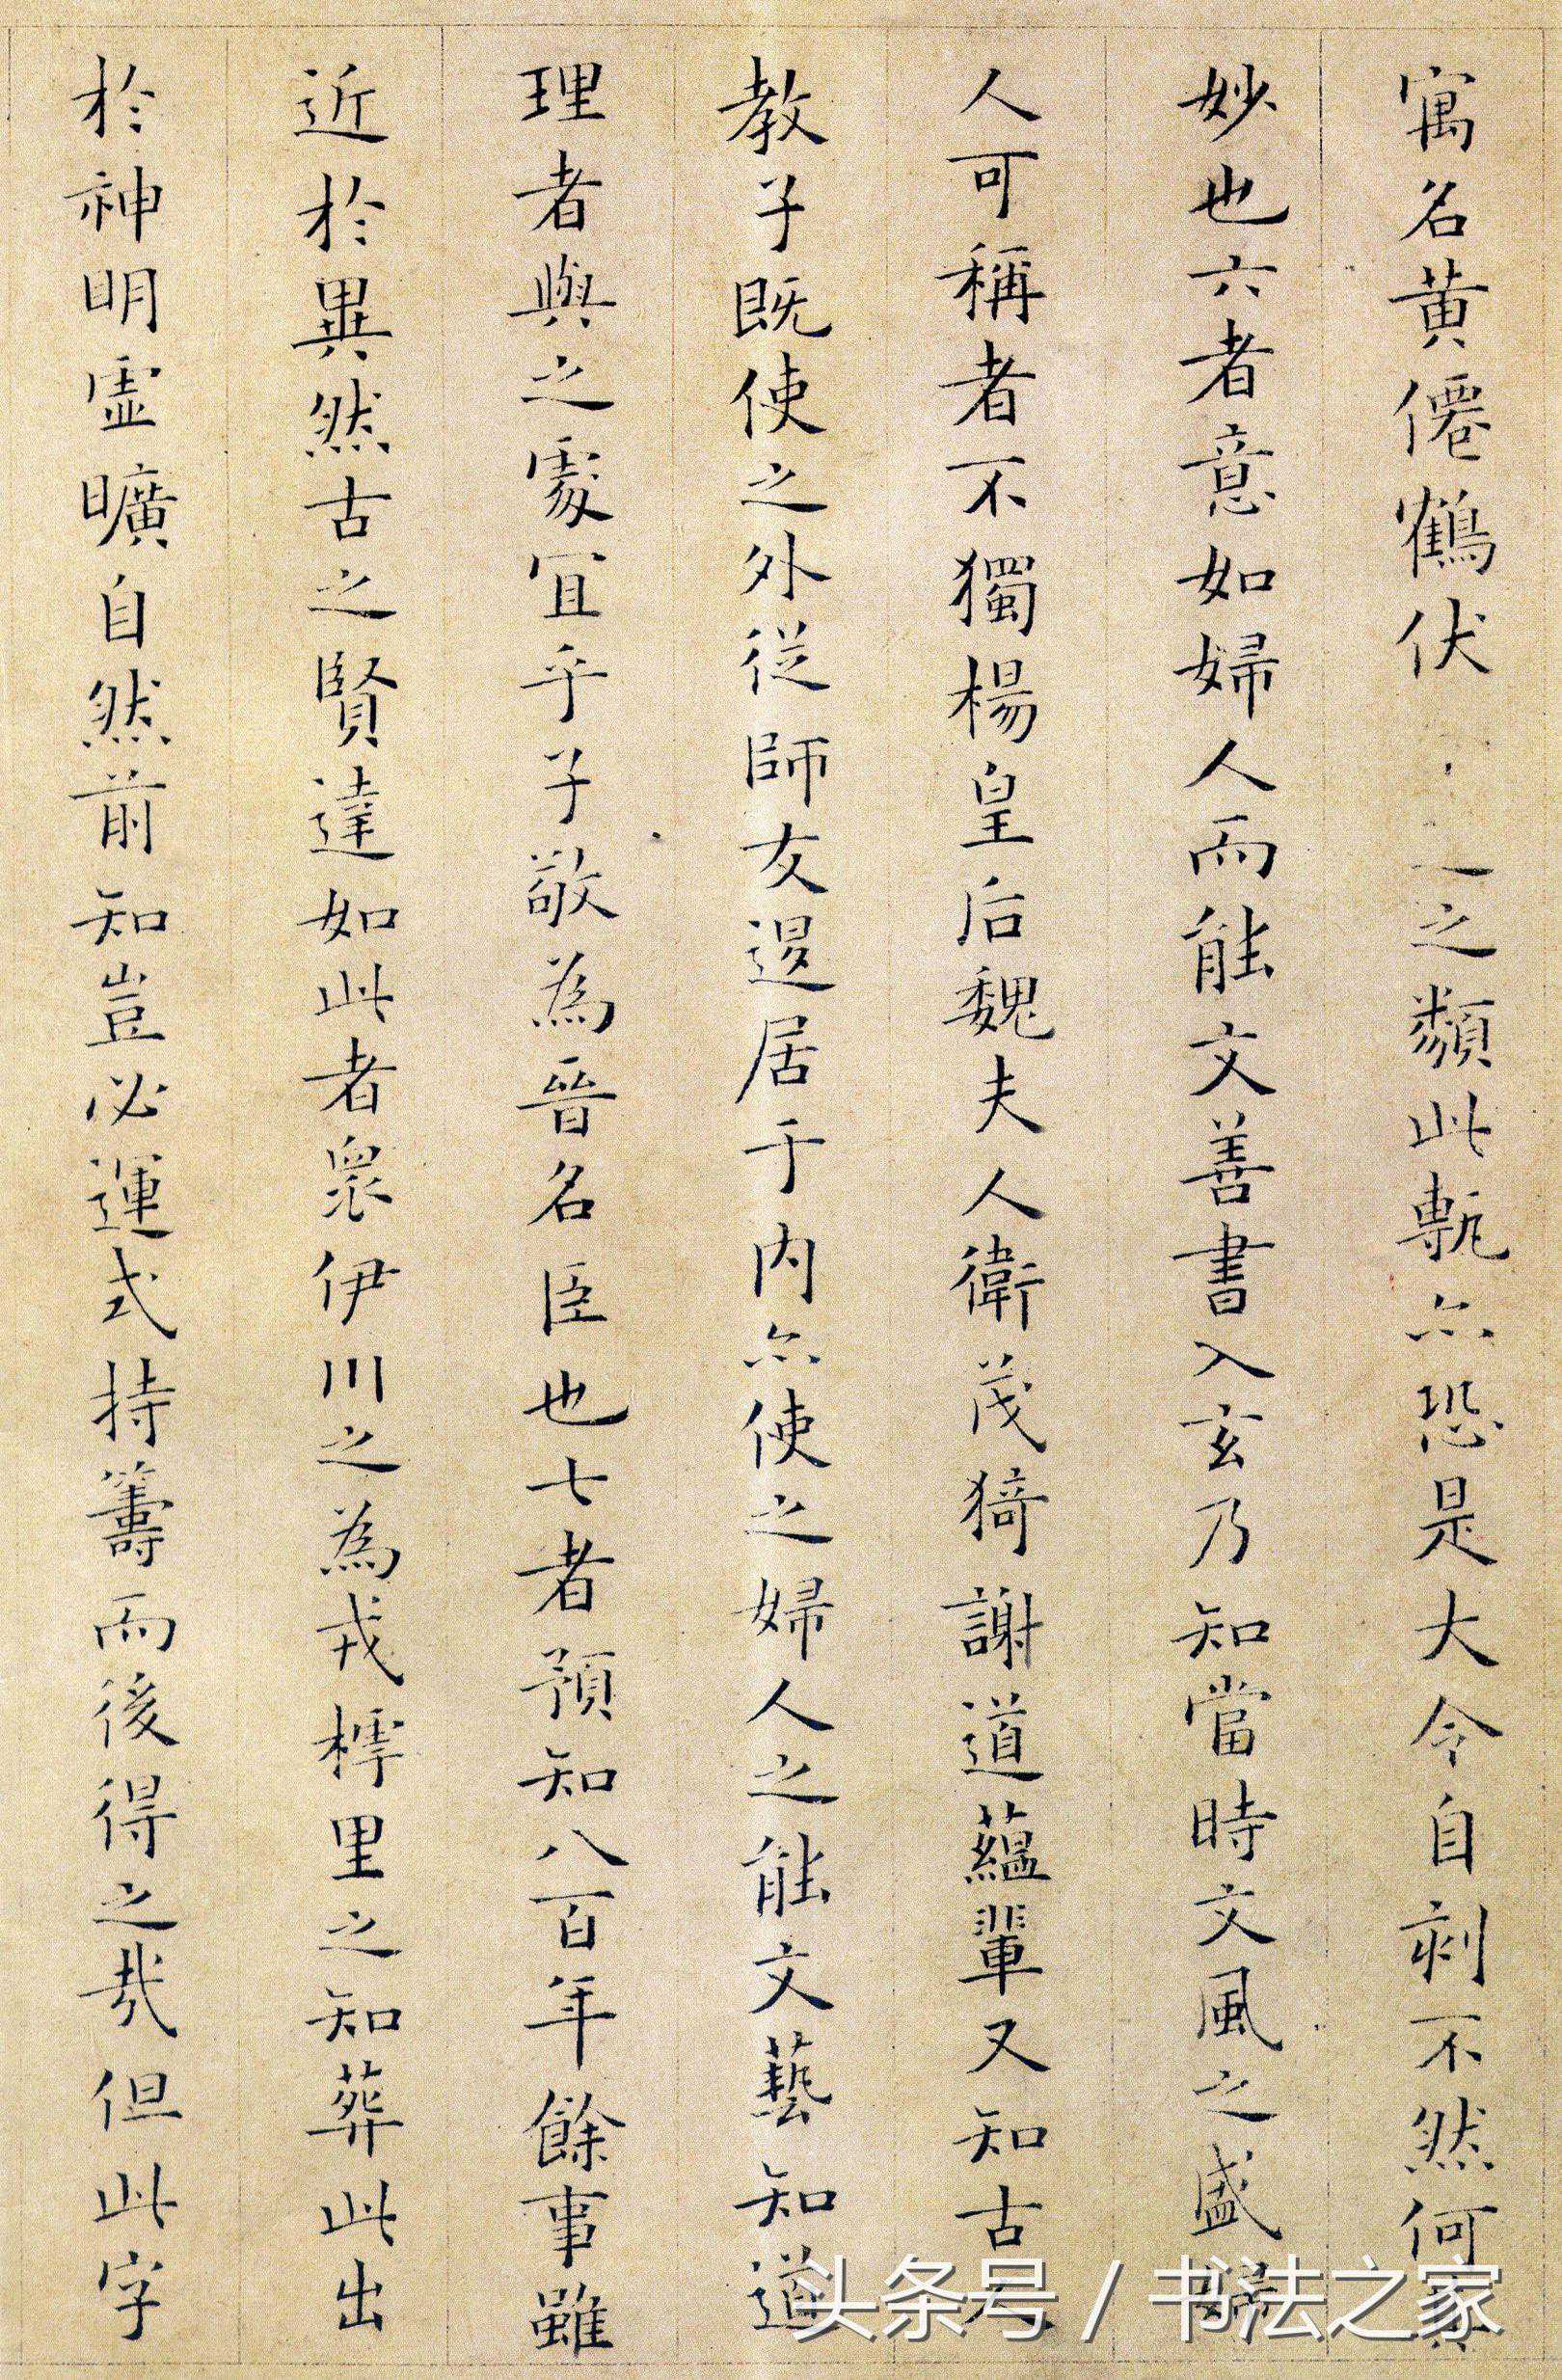 寓名黄僊鶴伏之類此輒亦恐是大令自刻不然何
妙也六者意如婦人而能文善書入玄乃知當時文風之盛
人可稱者不獨楊皇后魏夫人衛茂猗謝道蘊輩又知古
教子既使之外從師友退居于内亦使之婦人之能文藝知道
理者與之處宜乎子敬為晉名臣也七者預知八百年餘事雖
近於異然古之賢達如此者眾伊川之為戎樗里之知葬此出
於神明虛曠自然前知豈必運式持籌而後得之哉但此字
头条号 / 书法之家